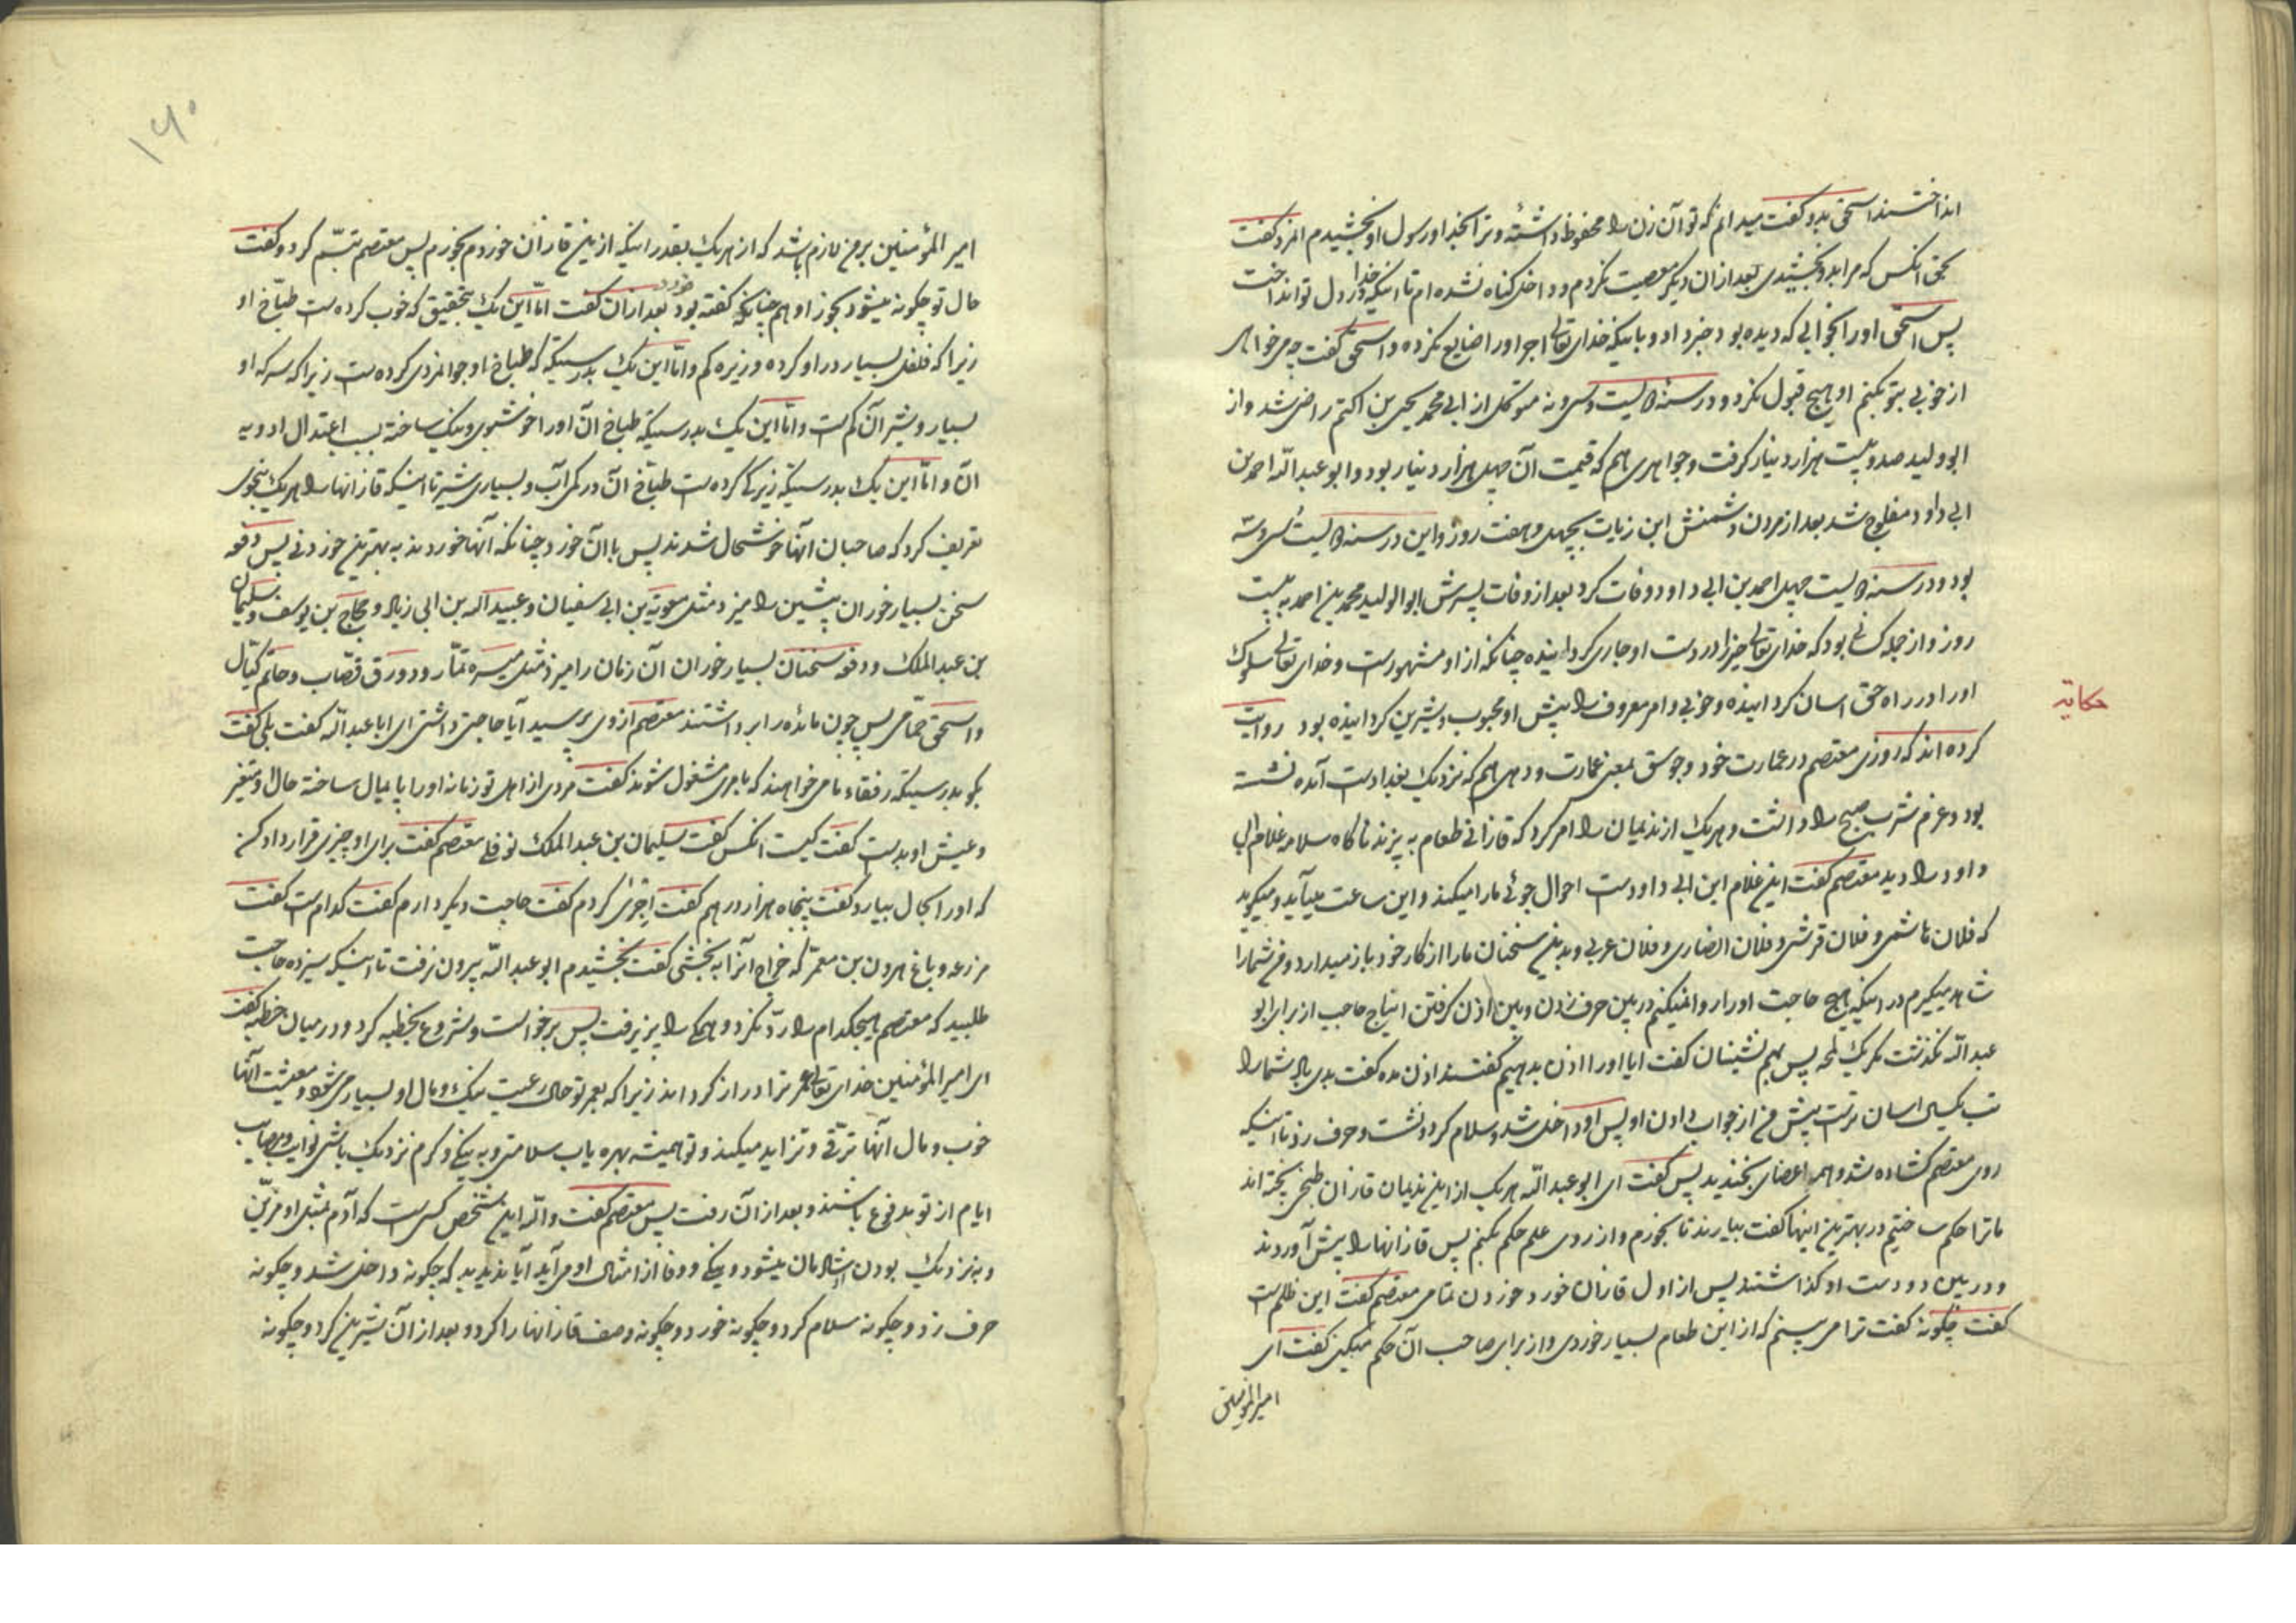 انداختند اسحق بدو گفت میدانم که تو آن زن را محفوظ داشتهٔ و ترا بخدا و رسول او بخشیدم انمرد گفت
بحق انکس که مرا بدو بخشیدی بعد از ان دیگر معصیت نکردم و داخل کناه نشده ام تا اینکه خدا در دل تو انداخت
پس اسحق او را بخوابی که دیده بود خبر داد و باینکه خدای تعالی اجر او را ضایع نکرده و اسحق گفت چه میخواهی
از خوبی بتو بکنم او هیچ قبول نکرد و در سنهٔ دویست و سی و نه متوکل از ابی محمد یحیی بن اکثم راضی شد و از
ابو ولید صد و بیست هزار دینار گرفت و جواهری هم که قیمت آن چهل هزار دینار بود و ابو عبد الله احمد بن
ابی داود مفلوج شد بعد از مردن دشمنش ابن زیات بچهل و هفت روز و این در سنه دویست و سی و سه
بود و در سنه دویست چهل احمد بن ابی داود وفات کرد بعد از وفات پسرش ابو الولید محمد بن احمد به بیست
روز و از جمله کسانی بود که خدای تعالی خیر را در دست او جاری کردانیده چنانکه از او مشهورست و خدای تعالی سلوک
او را در راه حق اسان کردانیده و خوبی و امر معروف را پیش او محبوب و شیرین کردانیده بود روایت
حکایة
کرده اند که روزی معتصم در عمارت خود و جوسق بمعنی عمارت و دهی هم که نزدیک بغدادست آمده نشسته
بود و عزم شرب صبح را داشت و هر یک از ندیمان را امر کرد که قازانی طعام به پزند ناکاه سلامه غلام ابی
داود را دید معتصم گفت این غلام ابن ابی داودست احوال جوئی ما را میکند و این ساعت میآید و میکوید
که فلان هاشمی و فلان قرشی و فلان انصاری و فلان عربی و بدین سخنان ما را از کار خود باز میدارد و من شما را
شاهد میکیرم در اینکه هیچ حاجت او را روا نمیکنم در بین حرف زدن و بین اذن گرفتن ایتاخ حاجب از برای ابو
عبد الله نکذشت مکر یک لمحه پس بهم نشینان گفت ایا او را اذن بدهیم گفتند اذن مده گفت بدی باد شما را
تب یکسال اسان ترست پیش من از جواب دادن او پس او داخل شد و سلام کرد و نشست و حرف زد تا اینکه
روی معتصم کشاده شد و همه اعضای بخندید پس گفت ای ابو عبد الله هر یک از این ندیمان قازان طبخی پخته اند
ما ترا حکم ساختیم در بهترین اینها گفت بیارند تا بخورم و از روی علم حکم بکنم پس قازانها را پیش آوردند
و در بین دو دست او گذاشتند پس از اول قازان خورد خوردن تمامی معتصم گفت این ظلم است
گفت چگونه گفت ترا می بینم که از این طعام بسیار خوردی و از برای صاحب آن حکم میکنی گفت ای
امیر المؤمنین
۱۶۰
امیر المؤمنین بر من لازم باشد که از هر یک بقدر اینکه از این قازان خوردم بخورم پس معتصم تبسّم کرد و گفت
حال تو چگونه میشود بخور او هم چنانکه گفته بود خورد بعد از ان گفت امّا این یک بتحقیق که خوب کرده است طبّاخ او
زیرا که فلفل بسیار در او کرده و زیره کم و امّا این یک بدرستیکه که طباخ او جوانمردی کرده است زیرا که سرکه او
بسیار و شیر آن کم است و امّا این یک بدرستیکه طباخ آن او را خوشبوی و نیک ساخته بسبب اعتدال ادویه
آن و امّا این یک بدرستیکه زیرکی کرده است طبّاخ آن در کمی آب و بسیاری شیر تا اینکه قازانها را هر یک بنحوی
تعریف کرد که صاحبان آنها خوشحال شدند پس با آن خورد چنانکه آنها خوردند به بهترین خوردنی پس دفعه
سخن بسیار خوران پیشین را میزد مثل معویة بن ابی سفیان و عبید الله بن ابی زیاد و حجاج بن یوسف و سلیمان
بن عبد الملک و دفعه سخنان بسیار خوران آن زمان را میزد مثل میسره تمّار و دورق قصّاب و حاتم کیّال
و اسحق حمّامی پس چون مائده را برداشتند معتصم از وی پرسید آیا حاجتی داشتی ای ابا عبد الله گفت بلی گفت
بگو بدرستیکه رفقاء ما میخواهند که بامری مشغول شوند گفت مردی از اهل تو زمانه او را پایمال ساخته حال او متغیر
و عیش او بدست گفت کیست انکس گفت سلیمان بن عبد الملک نوفلی معتصم گفت برای او چیزی قرار داد کن
که او را بحال بیارد گفت پنجاه هزار درهم گفت اجرای کردم گفت حاجت دیکر دارم گفت کدام است گفت
مزرعه و باغ هرون بن معمّر که خراج آنرا به بخشی گفت بخشیدم ابو عبد الله بیرون نرفت تا اینکه سیزده حاجت
طلبید که معتصم هیچکدام را ردّ نکرد و همه را پذیرفت پس برخواست و شروع بخطبه کرد و در میان خطبه گفت
ای امیر المؤمنین خدای تعالی عمر ترا دراز کرداند زیرا که بعمر تو حال رعیت نیک و مال او بسیار می شود و معیشت آنها
خوب و مال آنها ترقی و تزاید میکند و تو همیشه بهره یاب سلامتی و به نیکی و کرم نزدیک باشی نوایب و مصایب
ایام از تو مدفوع باشند و بعد از آن رفت پس معتصم گفت والله این شخص کسی است که آدم بمثل او مزیّن
و به نزدیک بودن او شادمان میشود و نیکی و وفا از امثال او می آید آیا ندیدید که چگونه داخل شد و چگونه
حرف زد و چگونه سلام کرد و چگونه خورد و چگونه وصف قازانها را کرد و بعد از آن شیرین کرد و چگونه